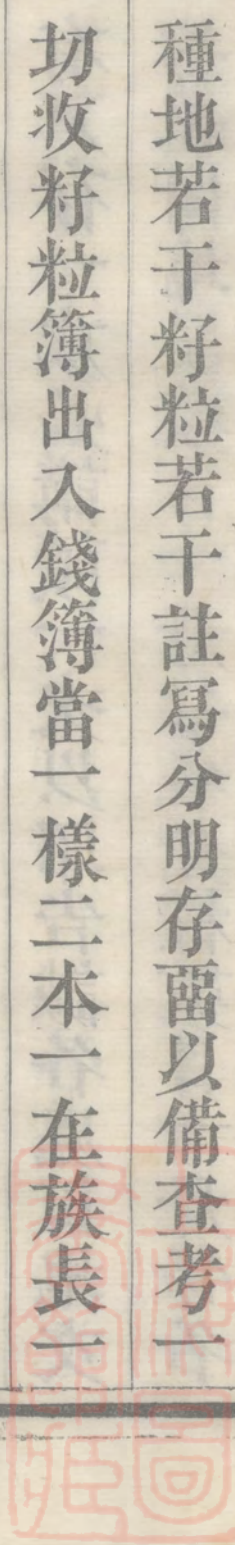 種地若干籽粒若干註冩分明存畱以備查考一
切收籽粒簿出入錢簿當一樣二本一在族長一